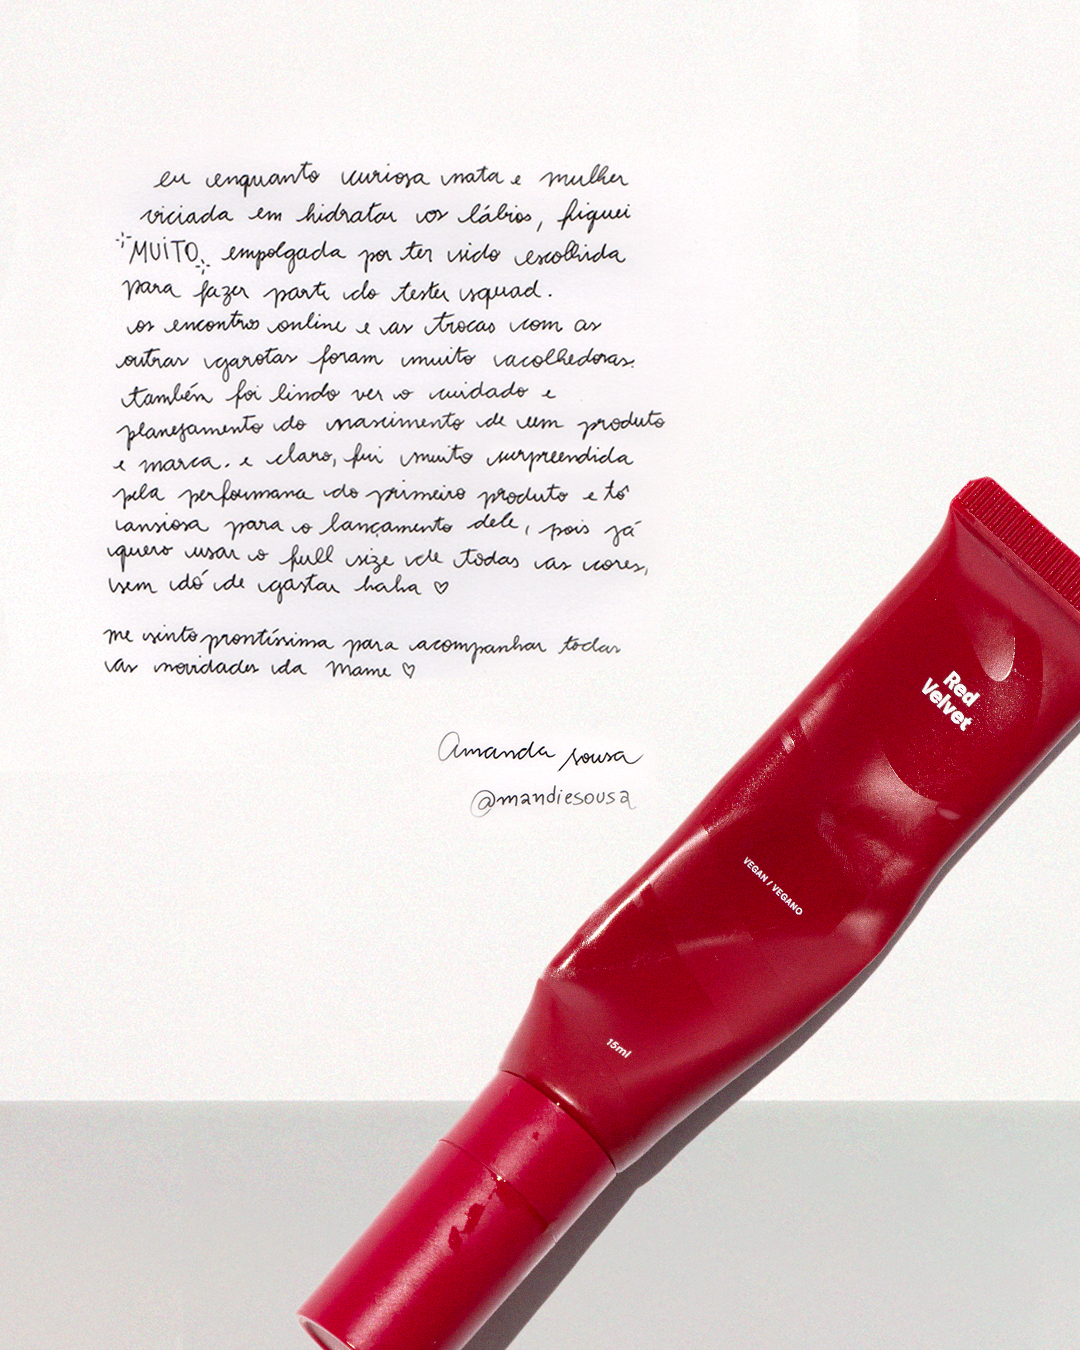 eu enquanto curiosa nata e mulher
viciada em hidratar os lábios, fiquei
MUITO empolgada por ter sido escolhida
para fazer parte do tester squad.
os encontros online e as trocas com as
outras garotas foram muito acolhedoras.
também foi lindo ver o cuidado e
planejamento do nascimento de um produto
e marca. e claro, fui muito surpreendida
pela performance do primeiro produto e tô
ansiosa para o lançamento dele, pois já
quero usar o full size de todas as cores,
sem dó de gastar haha ♡
me sinto prontíssima para acompanhar todas
as novidades da Mame ♡
Amanda sousa
@mandiesousa
Red
Velvet
VEGAN / VEGANO
15ml